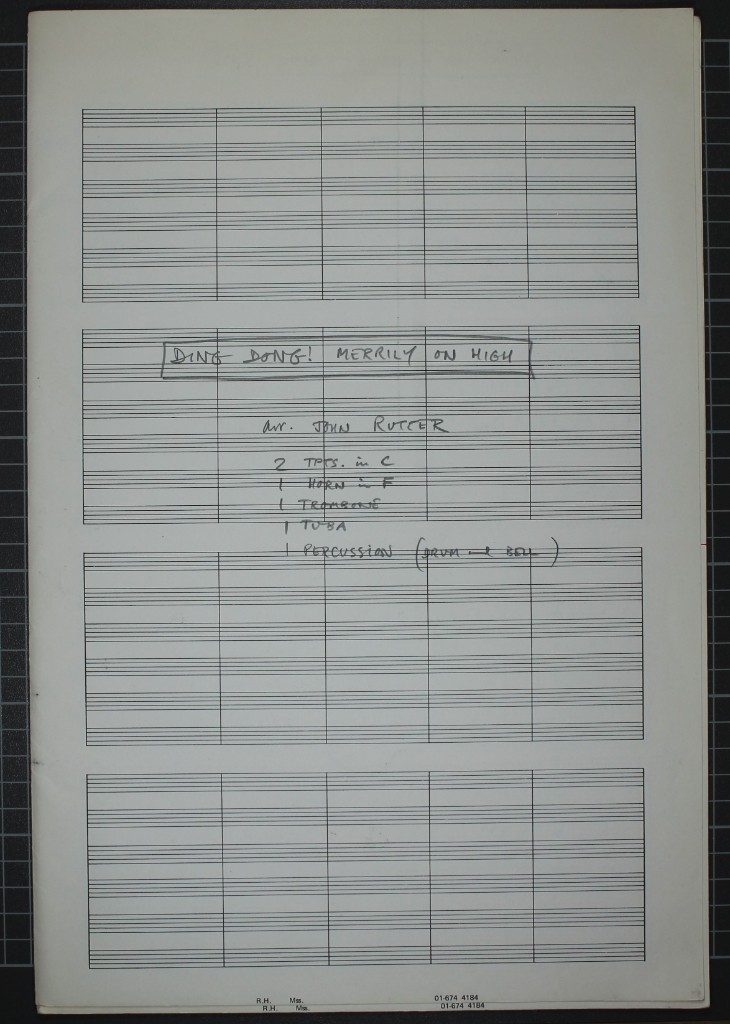 DING DONG! MERRILY ON HIGH
arr. JOHN RUTTER
2 TPTS. in C
1 HORN in F
1 TROMBONE
1 TUBA
1 PERCUSSION (DRUM and BELL)
R.H. Mss. 01-674 4184
R.H. Mss. 01-674 4184